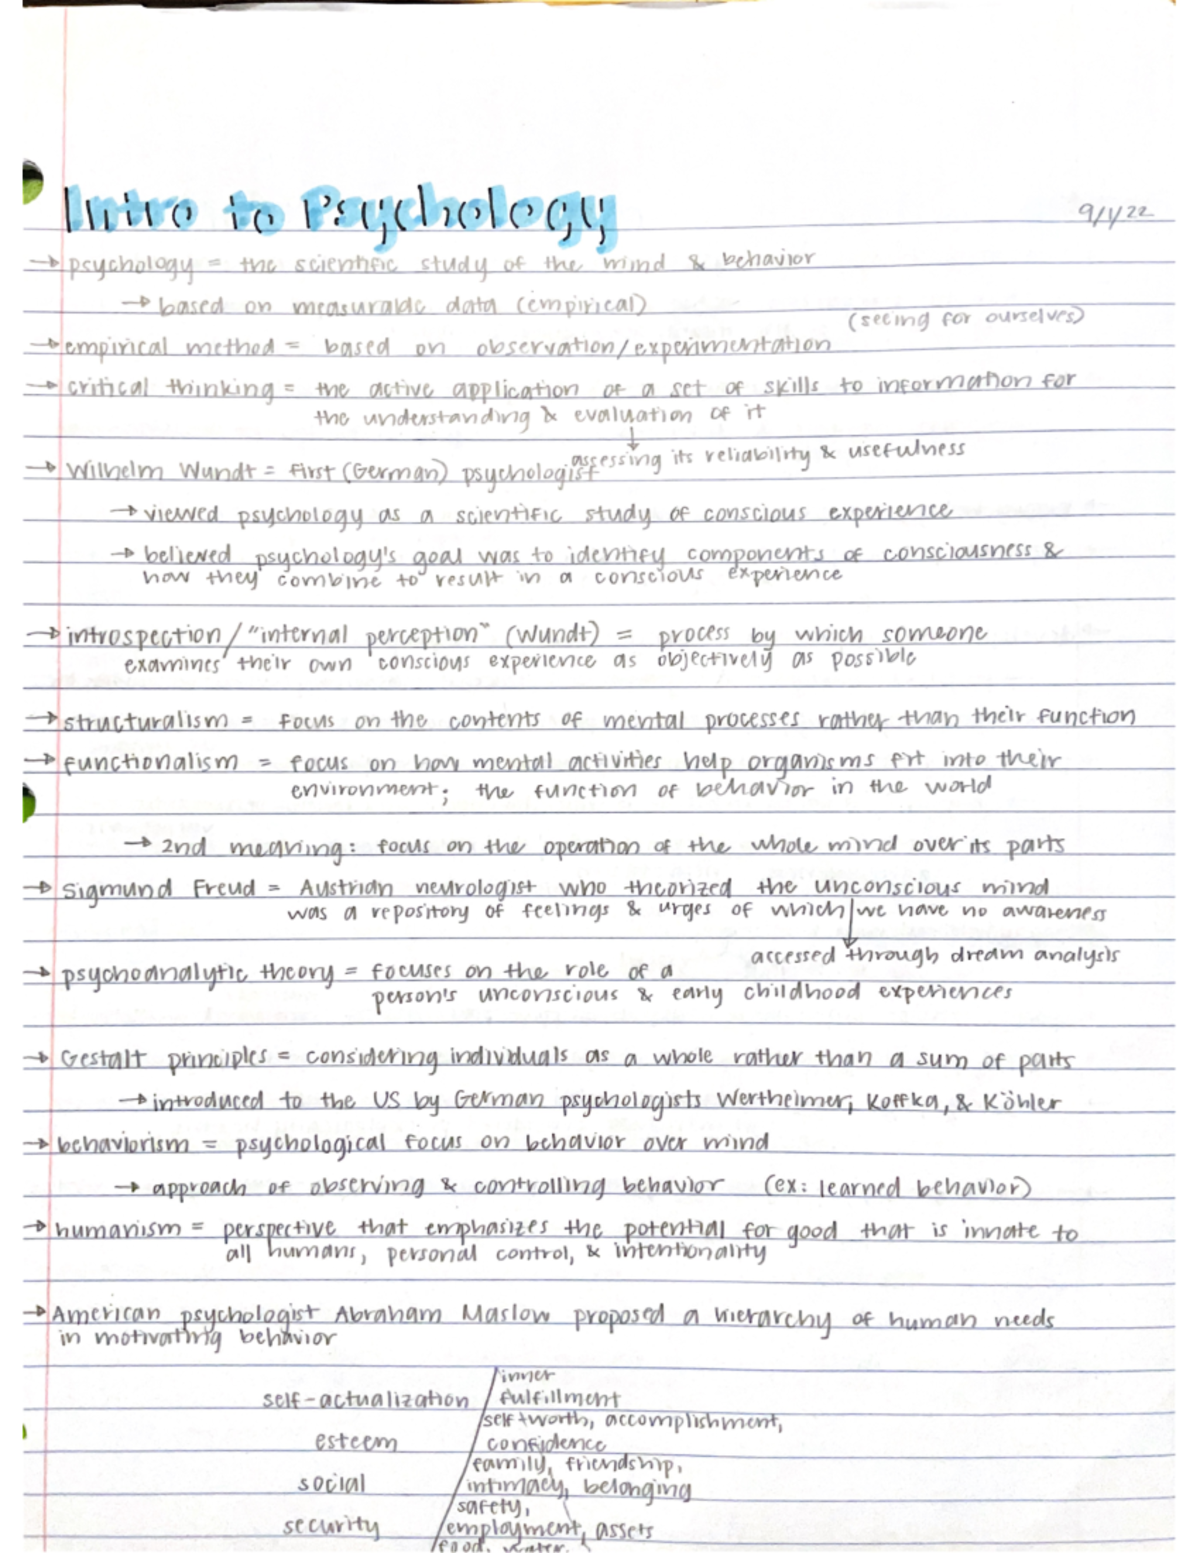 Intro to Psychology
9/1/22
→ psychology = the scientific study of the mind & behavior
→ based on measurable data (empirical)
(seeing for ourselves)
→ empirical method = based on observation/experimentation
→ critical thinking = the active application of a set of skills to information for
the understanding & evaluation of it
↓
assessing its reliability & usefulness
→ Wilhelm Wundt = first (German) psychologist
→ viewed psychology as a scientific study of conscious experience
→ believed psychology's goal was to identify components of consciousness &
how they combine to result in a conscious experience
→ introspection / "internal perception" (Wundt) = process by which someone
examines their own conscious experience as objectively as possible
→ structuralism = focus on the contents of mental processes rather than their function
→ functionalism = focus on how mental activities help organisms fit into their
environment; the function of behavior in the world
→ 2nd meaning: focus on the operation of the whole mind over its parts
→ Sigmund Freud = Austrian neurologist who theorized the unconscious mind
was a repository of feelings & urges of which we have no awareness
↓
accessed through dream analysis
→ psychoanalytic theory = focuses on the role of a
person's unconscious & early childhood experiences
→ Gestalt principles = considering individuals as a whole rather than a sum of parts
→ introduced to the US by German psychologists Wertheimer, Koffka, & Köhler
→ behaviorism = psychological focus on behavior over mind
→ approach of observing & controlling behavior (ex: learned behavior)
→ humanism = perspective that emphasizes the potential for good that is innate to
all humans, personal control, & intentionality
→ American psychologist Abraham Maslow proposed a hierarchy of human needs
in motivating behavior
inner
self-actualization / fulfillment
self-worth, accomplishment,
esteem / confidence
family, friendship,
social / intimacy, belonging
safety,
security / employment, assets
food, water,